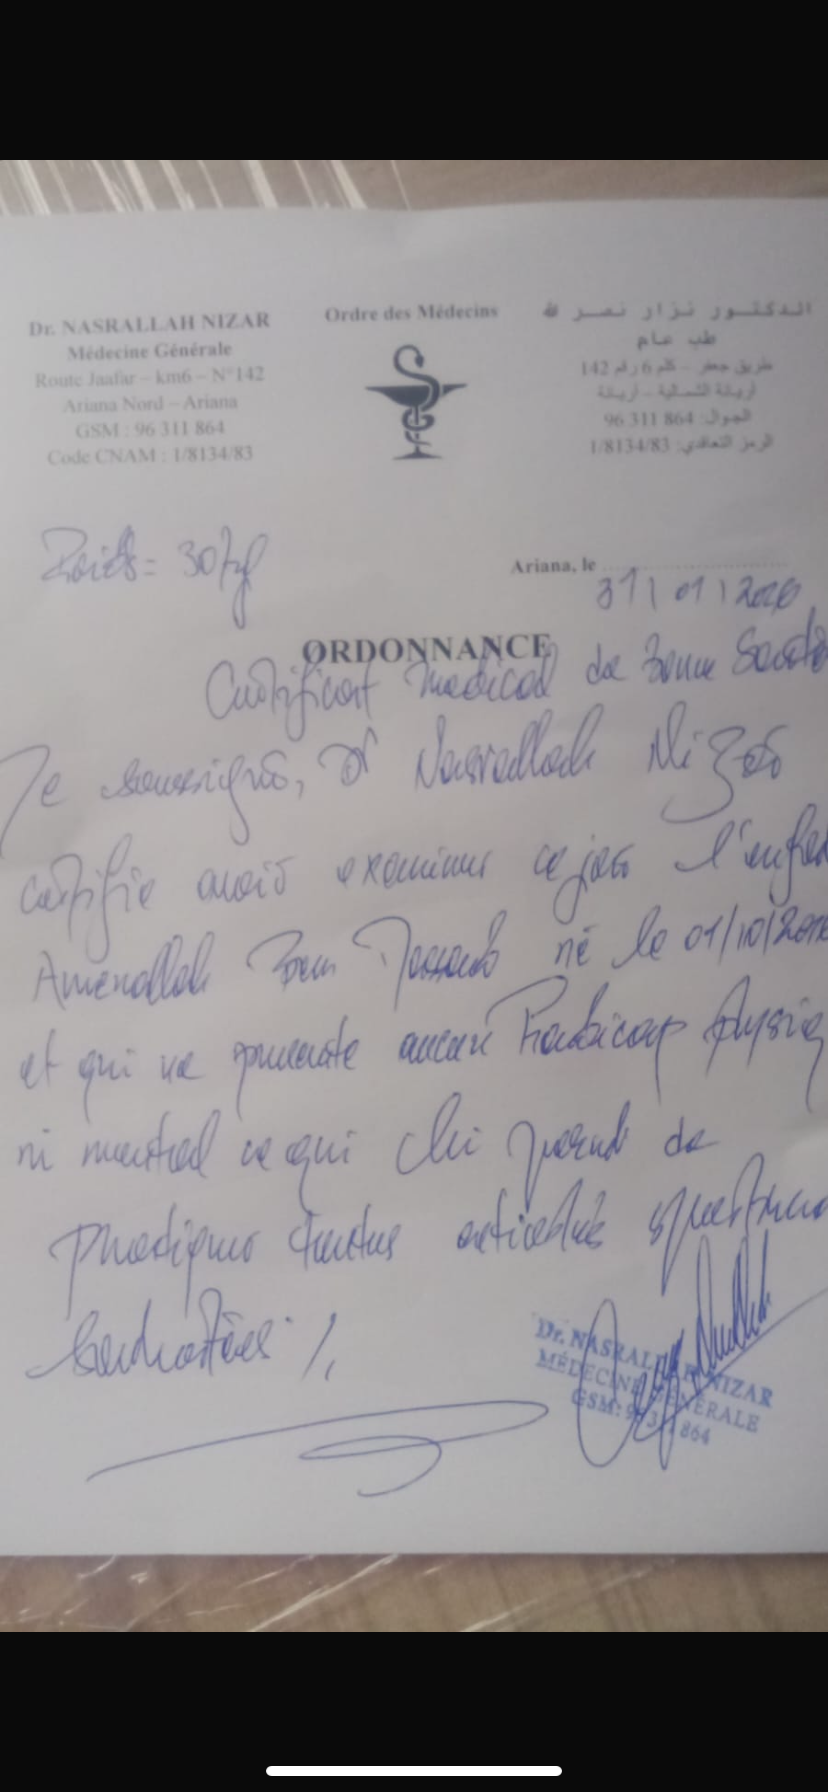 Dr. NASRALLAH NIZAR
Médecine Générale
Route Jaafar – km6 – N°142
Ariana Nord – Ariana
GSM : 96 311 864
Code CNAM : 1/8134/83
Ordre des Médecins
الدكتور نزار نصر الله
طب عام
طريق جعفر - كلم 6 رقم 142
أريانة الشمالية - أريانة
الجوال: 864 311 96
الرمز التعاقدي: 1/8134/83
Poids = 30 kg
Ariana, le
31/01/2026
ORDONNANCE
Certificat medical de bonne Santé
Je soussigné, Dr Nasrallah Nizar
certifie avoir examiner ce jour l'enfan
Amenallah Ben né le 01/10/201
et qui ne presente aucun handicap physiq
ni mental ce qui lui permet de
pratiquer toutes activités sportives
/.
Dr. NASRALLAH NIZAR
MÉDECINE GÉNÉRALE
GSM: 96 311 864